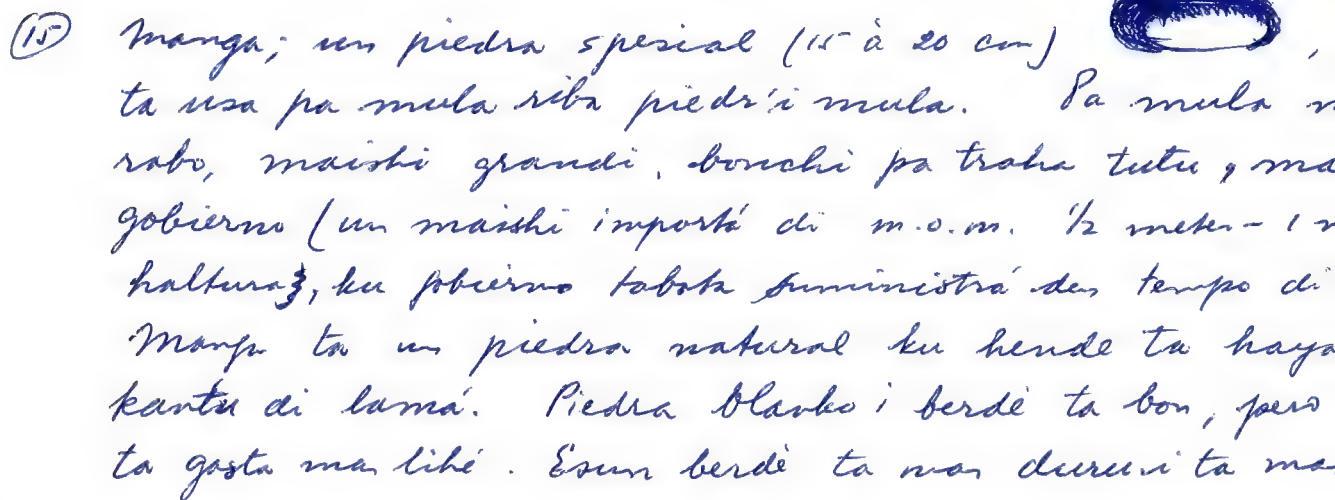 (15) Manga; un piedra spesial (15 à 20 cm) ,
ta usa pa mula riba piedr'i mula. Pa mula
rabo, maishi grandi, bonchi pa traha tutu, ma
gobierno (un maishi importá di m.o.m. 1/2 meter - 1 m
haltura), ku gobierno tabata suministrá den tempo di
Manga ta un piedra natural ku hende ta haya
kantu di lamá. Piedra blanko i berdè ta bon, pero
ta gasta mas lihé. Esun berdè ta mas duru i ta ma